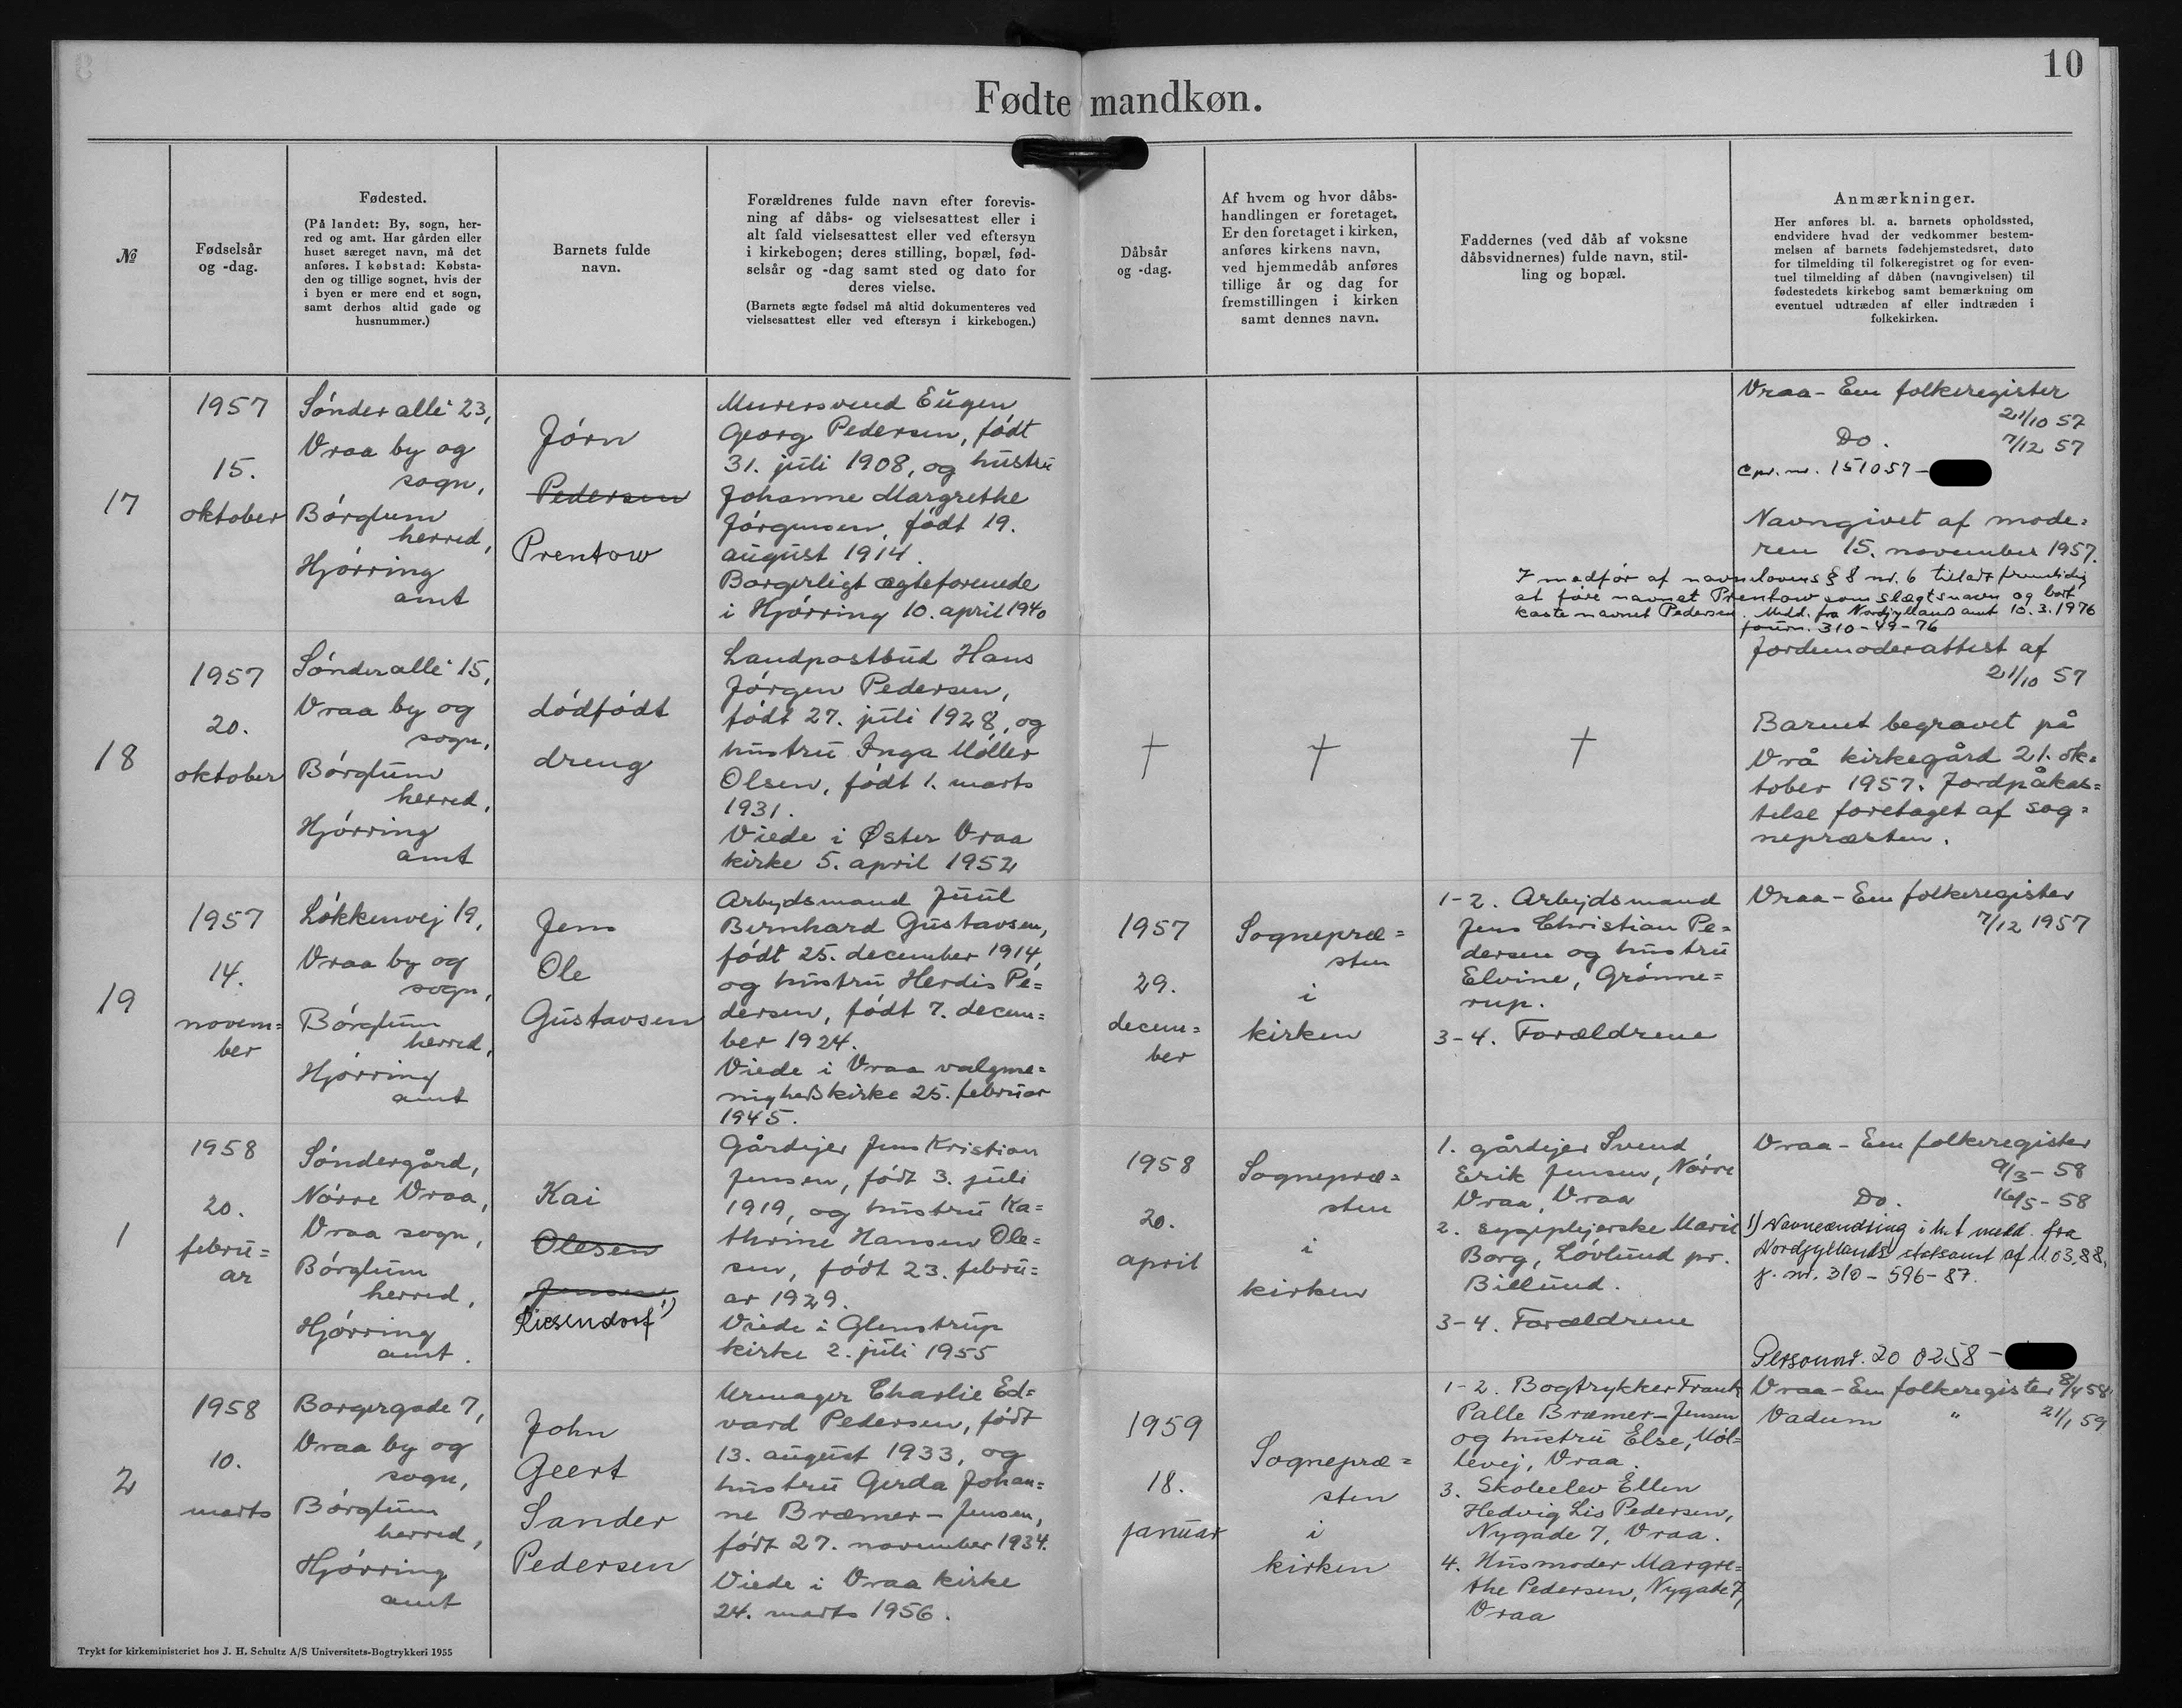 10
Fødte mandkøn.
№
Fødselsår
og -dag.
Fødested.
(På landet: By, sogn, her-
red og amt. Har gården eller
huset særeget navn, må det
anføres. I købstad: Købsta-
den og tillige sognet, hvis der
i byen er mere end et sogn,
samt derhos altid gade og
husnummer.)
Barnets fulde
navn.
Forældrenes fulde navn efter forevis-
ning af dåbs- og vielsesattest eller i
alt fald vielsesattest eller ved eftersyn
i kirkebogen; deres stilling, bopæl, fød-
selsår og -dag samt sted og dato for
deres vielse.
(Barnets ægte fødsel må altid dokumenteres ved
vielsesattest eller ved eftersyn i kirkebogen.)
Dåbsår
og -dag.
Af hvem og hvor dåbs-
handlingen er foretaget.
Er den foretaget i kirken,
anføres kirkens navn,
ved hjemmedåb anføres
tillige år og dag for
fremstillingen i kirken
samt dennes navn.
Faddernes (ved dåb af voksne
dåbsvidnernes) fulde navn, stil-
ling og bopæl.
Anmærkninger.
Her anføres bl. a. barnets opholdssted,
endvidere hvad der vedkommer bestem-
melsen af barnets fødehjemstedsret, dato
for tilmelding til folkeregistret og for even-
tuel tilmelding af dåben (navngivelsen) til
fødestedets kirkebog samt bemærkning om
eventuel udtræden af eller indtræden i
folkekirken.
17
1957
15.
oktober
Sønder allé 23,
Vraa by og
sogn,
Børglum
herred,
Hjørring
amt
Jørn
Pedersen
Prentow
Murersvend Eugen
Georg Pedersen, født
31. juli 1908, og hustru
Johanne Margrethe
Jørgensen, født 19.
august 1914.
Borgerligt ægteforenede
i Hjørring 10. april 1940
Vraa - Em folkeregister
21/10 57
Do. 7/12 57
Cpr. nr. 151057-
Navngivet af mode=
ren 15. november 1957.
I medfør af navnelovens § 8 nr. 6 tilladt fremtidig
at føre navnet Prentow som slægtsnavn og bort
kaste navnet Pedersen. Medd. fra Nordjyllands amt 10.3.1976
journ. 310-49-76
18
1957
20.
oktober
Sønderallé 15,
Vraa by og
sogn,
Børglum
herred,
Hjørring
amt
dødfødt
dreng
Landpostbud Hans
Jørgen Pedersen,
født 27. juli 1928, og
hustru Inga Møller
Olsen, født 1. marts
1931.
Viede i Øster Vraa
kirke 5. april 1952
†
†
†
Jordemoderattest af
21/10 57
Barnet begravet på
Vrå kirkegård 21. ok=
tober 1957. Jordpåkas=
telse foretaget af sog=
nepræsten.
19
1957
14.
novem=
ber
Løkkenvej 19,
Vraa by og
sogn,
Børglum
herred,
Hjørring
amt
Jens
Ole
Gustavsen
Arbejdsmand Juul
Bernhard Gustavsen,
født 25. december 1914,
og hustru Herdis Pe=
dersen, født 7. decem=
ber 1924.
Viede i Vraa valgme=
nighedskirke 25. februar
1945.
1957
29.
decem=
ber
Sognepræ=
sten
i
kirken
1-2. Arbejdsmand
Jens Christian Pe=
dersen og hustru
Elvine, Grønne=
rup.
3-4. Forældrene
Vraa - Em folkeregister
7/12 1957
1
1958
20.
febru=
ar
Søndergård,
Nørre Vraa,
Vraa sogn,
Børglum
herred,
Hjørring
amt.
Kai
Olesen
Jensen
Riesendorf 1)
Gårdejer Jens Kristian
Jensen, født 3. juli
1919, og hustru Ka=
thrine Hansen Ole=
sen, født 23. febru=
ar 1929.
Viede i Glenstrup
kirke 2. juli 1955
1958
20.
april
Sognepræ=
sten
i
kirken
1. gårdejer Svend
Erik Jensen, Nørre
Vraa, Vraa
2. sygeplejerske Marie
Borg, Løvlund pr.
Billund.
3-4. Forældrene
Vraa - Em folkeregister
9/3 - 58
Do. 16/5 - 58
1) Navneændring i h.t. medd. fra
Nordjyllands statsamt af 11.03.88,
j. nr. 310-596-87.
Personnr. 20 0258 -
2
1958
10.
marts
Borgergade 7,
Vraa by og
sogn,
Børglum
herred,
Hjørring
amt
John
Geert
Sander
Pedersen
Urmager Charlie Ed=
vard Pedersen, født
13. august 1933, og
hustru Gerda Johan=
ne Bræmer-Jensen,
født 27. november 1934.
Viede i Vraa kirke
24. marts 1956.
1959
18.
januar
Sognepræ=
sten
i
kirken
1-2. Bogtrykker Frank
Palle Bræmer-Jensen
og hustru Else, Møl=
levej, Vraa.
3. Skoleelev Ellen
Hedvig Lis Pedersen,
Nygade 7, Vraa.
4. Husmoder Margre=
the Pedersen, Nygade 7,
Vraa
Vraa - Em folkeregister 8/4 58
Vadum " 21/1 59
Trykt for kirkeministeriet hos J. H. Schultz A/S Universitets-Bogtrykkeri 1955